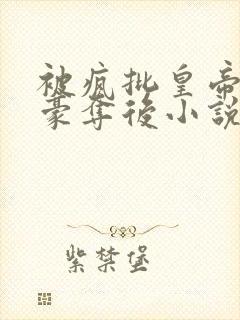 被瘋批皇帝
豪奪後小說
紫禁堡